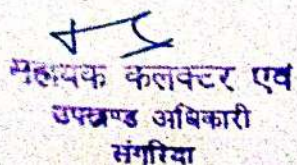 सहायक कलक्टर एवं
उपखण्ड अधिकारी
संगरिया